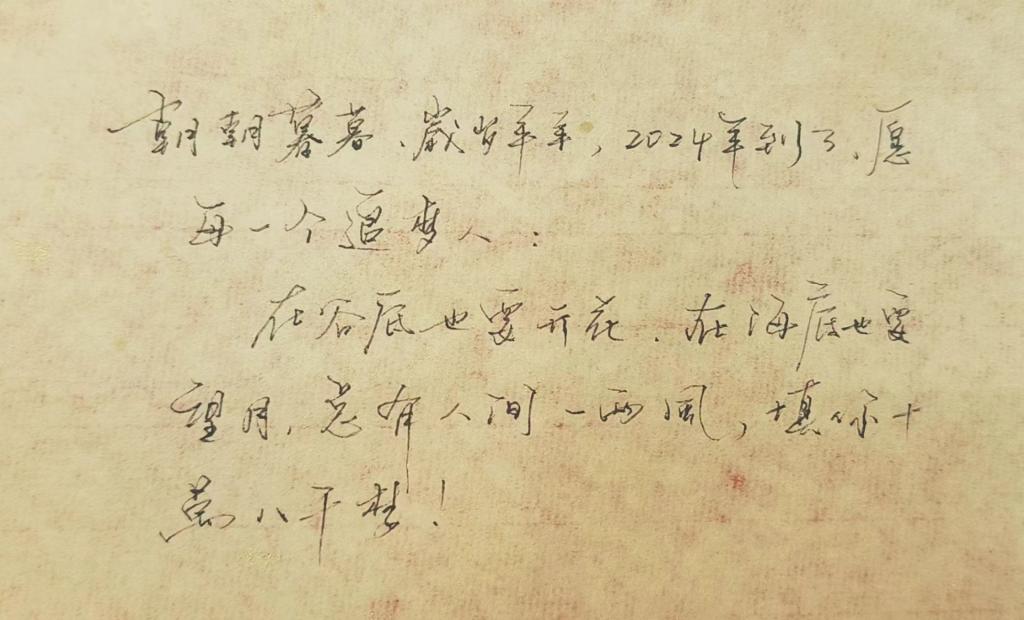 朝朝暮暮、歲歲年年，2024年到了、愿
每一个追梦人：
在谷底也要开花、在海底也要
望月，总有人间一两風，填你十
萬八千梦！